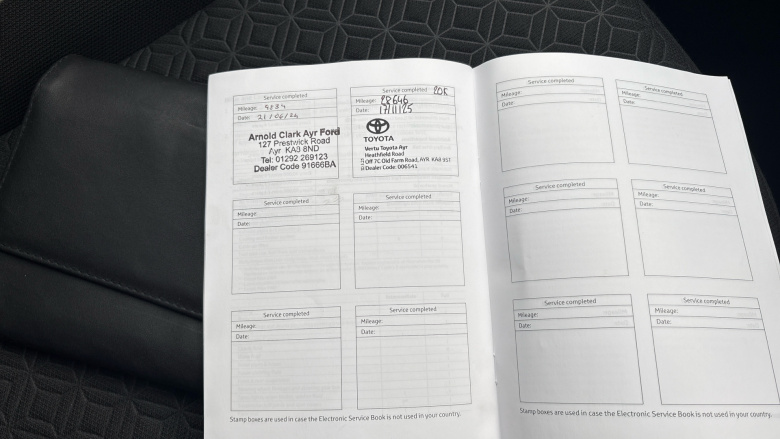 Service completed
Mileage: 9834
Date: 21/06/24
Arnold Clark Ayr Ford
127 Prestwick Road
Ayr KA8 8ND
Tel: 01292 269123
Dealer Code 91666BA
Service completed 20K
Mileage: 28646
Date: 17/11/25
TOYOTA
Vertu Toyota Ayr
Heathfield Road
Off 7C Old Farm Road, AYR KA8 9ST
Dealer Code: 006541
Service completed
Mileage:
Date:
Service completed
Mileage:
Date:
Service completed
Mileage:
Date:
Service completed
Mileage:
Date:
Stamp boxes are used in case the Electronic Service Book is not used in your country.
Service completed
Mileage:
Date:
Service completed
Mileage:
Date:
Service completed
Mileage:
Date:
Service completed
Mileage:
Date:
Service completed
Mileage:
Date:
Service completed
Mileage:
Date:
Stamp boxes are used in case the Electronic Service Book is not used in your country.